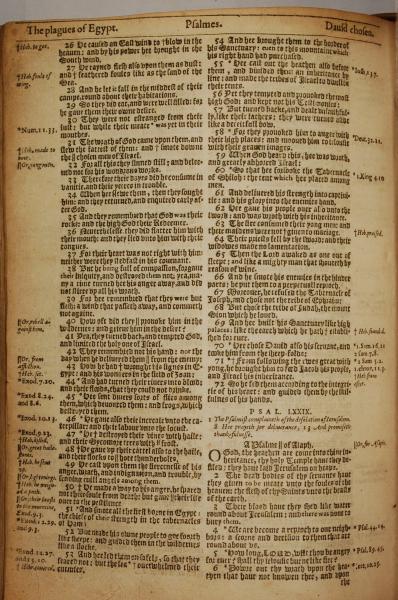 The plagues of Egypt.
Psalmes.
Dauid chosen.
26 He caused an East wind to † blow in the
heauen: and by his power hee brought in the
South wind.
27 He rayned flesh also vpon them as dust:
and † feathered foules like as the sand of the
Sea.
28 And he let it fall in the middest of their
campe, round about their habitations.
29 So they did eat, and were well filled: for
he gaue them their own desire.
30 They were not estranged from their
lust: but while their meate * was yet in their
mouthes,
31 The wrath of God came vpon them, and
slew the fattest of them: and † smote down
the || chosen men of Israel.
32 For all this they sinned still: and belee-
ued not for his wondrous works.
33 Therefore their dayes did he consume in
vanitie, and their yeeres in trouble.
34 When hee slew them, then they sought
him: and they returned, and enquired early af-
ter God.
35 And they remembred that God was their
rocke: and the high God their Redeemer.
36 Neuerthelesse they did flatter him with
their mouth: and they lied vnto him with their
tongues.
37 For their heart was not right with him:
neither were they stedfast in his couenant.
38 But he being full of compassion, forgaue
their iniquity, and destroyed them not; yea, ma-
ny a time turned he his anger away, and did
not stirre vp all his wrath.
39 For hee remembred that they were but
flesh; a wind that passeth away, and commeth
not againe.
40 How oft did they || prouoke him in the
wildernes: and grieue him in the desert?
41 Yea, they turned back, and tempted God,
and limited the holy one of Israel.
42 They remembred not his hand: nor the
day when he deliuered them || from the enemy:
43 How he had † wrought his signes in E-
gypt: and his wonders in the field of Zoan:
44 * And had turned their riuers into blood:
and their floods, that they could not drinke.
45 * He sent diuers sorts of flies among
them, which deuoured them: and frogs, which
destroyed them.
46 * He gaue also their increase vnto the ca-
terpiller: and their labour vnto the locust.
47 * He † destroyed their vines with haile:
and their Sycomore trees with || frost.
48 † He gaue vp their cattel also to the haile,
and their flocks to || hot thunderbolts.
49 He cast vpon them the fiercenesse of his
anger, wrath, and indignation, and trouble, by
sending euill angels among them.
50 † He made a way to his anger, he spared
not their soule from death: but gaue || their life
ouer to the pestilence.
51 * And smote all the first borne in Egypt:
the chiefe of their strength in the tabernacles
of Ham:
52 But made his owne people to goe foorth
like sheepe: and guided them in the wildernes
like a flocke.
53 And hee led them on safely, so that they
feared not: but the sea * † ouerwhelmed their
enemies.
54 And hee brought them to the border of
his Sanctuary: euen to this mountaine which
his right hand had purchased.
55 * He cast out the heathen also before
them, and diuided them an inheritance by
line: and made the tribes of Israel to dwell in
their tents.
56 Yet they tempted and prouoked the most
high God: and kept not his Testimonies:
57 But turned backe, and dealt vnfaithful-
ly, like their fathers: they were turned aside
like a deceitfull bow.
58 * For they prouoked him to anger with
their high places: and mooued him to iealousie
with their grauen images.
59 When God heard this, hee was wroth,
and greatly abhorred Israel:
60 * So that he forsooke the Tabernacle
of Shiloh: the tent which he placed among
men,
61 And deliuered his strength into captiui-
tie: and his glory into the enemies hand.
62 He gaue his people ouer also vnto the
sword: and was wroth with his inheritance.
63 The fire consumed their yong men: and
their maidens were not † giuen to mariage.
64 Their priests fell by the sword: and their
widowes made no lamentation.
65 Then the Lord awaked as one out of
sleepe: and like a mighty man that shouteth by
reason of wine.
66 And he smote his enemies in the hinder
parts: he put them to a perpetuall reproch.
67 Moreouer, he refused the Tabernacle of
Ioseph, and chose not the tribe of Ephraim:
68 But chose the tribe of Iudah, the mount
Sion which he loued.
69 And hee built his Sanctuary like high
palaces: like the earth which he hath † establi-
shed for euer.
70 * He chose Dauid also his seruant, and
tooke him from the sheep-folds:
71 * † From following the ewes great with
yong, he brought him to feed Iacob his people,
and Israel his inheritance.
72 So he fed them according to the integri-
tie of his heart: and guided them by the skil-
fulnes of his hands.
PSAL. LXXIX.
1 The Psalmist complaineth of the desolation of Ierusalem.
8 Hee prayeth for deliuerance, 13 And promiseth
thankfulnesse.
A Psalme || of Asaph.
O God, the heathen are come into thine in-
heritance, thy holy Temple haue they de-
filed: they haue laid Ierusalem on heaps.
2 The dead bodies of thy seruants haue
they giuen to be meate vnto the foules of the
heauen: the flesh of thy Saints vnto the beasts
of the earth.
3 Their blood haue they shed like water
round about Ierusalem: and there was none to
bury them.
4 * We are become a reproch to our neigh-
bours: a scorne and derision to them that are
round about vs.
5 * How long, LORD, wilt thou be angry
for euer? shall thy iealousie burne like fire?
6 * Powre out thy wrath vpon the hea-
then that haue not knowen thee, and vpon
the